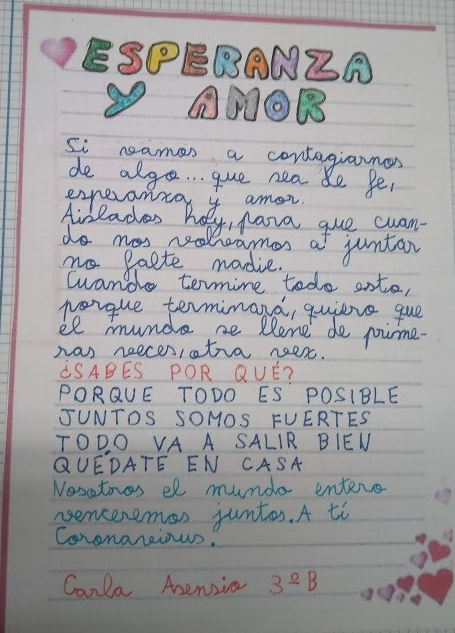 ESPERANZA
Y AMOR
Si vamos a contagiarnos
de algo... que sea de fe,
esperanza y amor.
Aislados hoy, para que cuan-
do nos volvamos a juntar
no falte nadie.
Cuando termine todo esto,
porque terminará, quiero que
el mundo se llene de prime-
ras veces, otra vez.
¿SABES POR QUÉ?
PORQUE TODO ES POSIBLE
JUNTOS SOMOS FUERTES
TODO VA A SALIR BIEN
QUÉDATE EN CASA
Nosotros el mundo entero
venceremos juntos. A tí
Coronaveirus.
Carla Asensio 3ºB